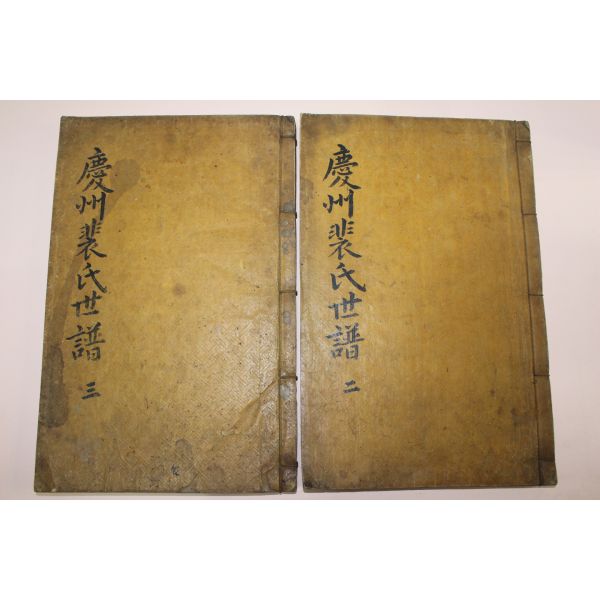 慶州裴氏世譜 三
慶州裴氏世譜 二